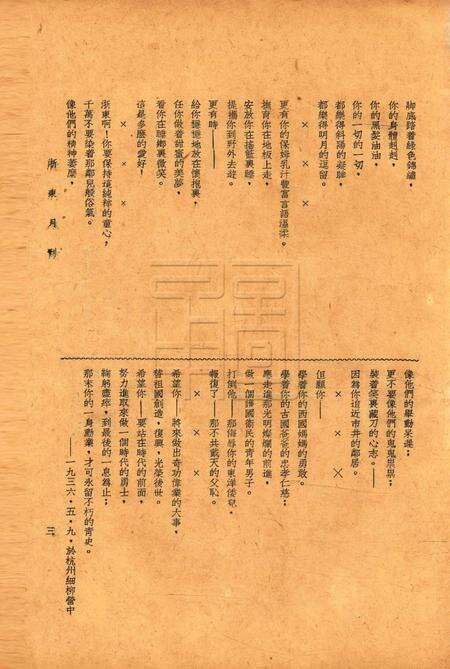 脚底踏着綠色錦繡,
你的身體翹翹,
你的黑髮油油,
你的一切的一切,
都變得斜陽的凝睇,
都樂得明月的逗留。
× × ×
更有你的保姆乳汁豐富言語溫柔。
撫育你在地板上走,
安放你在搖籃裏睡,
提攜你到野外去遊。
更有時——
給你慢慢地放在懷抱裏,
任你做着甜蜜的美夢,
看你在睡鄉裏微笑。
這是多麽的愛好!
× × ×
浙東啊!你要保持這純粹的童心,
千萬不要染着那鄰兒般俗氣。
像他們的精神萎靡,
浙東月刊
像他們的舉動呆遲;
更不要像他們的鬼鬼祟祟;
裝着笑裏藏刀的心志。——
因為你這近市井的鄰居。
× × ×
但願你——
學着你的西國媽媽的勇敢。
學着你的古國爸爸的忠孝仁慈;
應走進那光明燦爛的前進,
做一個護國衛民的青年男子。
打倒他——那侮辱你的東洋倭兒,
報復了——那不共戴天的父恥。
× × ×
希望你——將來做出奇功偉業的大事,
替祖國創造,復興,光榮後世。
希望你——要站在時代的前面,
努力進取來做一個時代的勇士,
鞠躬盡瘁,到最後的一息爲止;
那末你的一身動業,才可永留不朽的青史。
——一九三六·五·九·於杭州細柳營中
三